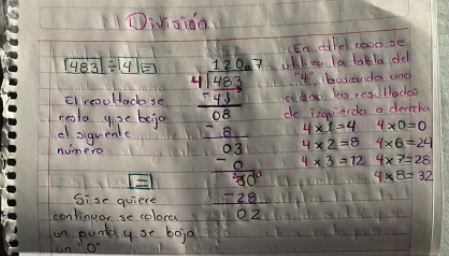 División
483 ÷ 4 =
El resultado se
resta y se baja
el siguiente
número
=
Si se quiere
continuar se coloca
un punto y se baja
un "0"
120.7
4 483
- 4
08
- 8
03
- 0
30
- 28
02
En este caso se
utilizo la tabla del
"4", buscando uno
a uno los resultados
de izquierda a derecha
4 x 1 = 4 4 x 0 = 0
4 x 2 = 8 4 x 6 = 24
4 x 3 = 12 4 x 7 = 28
4 x 8 = 32